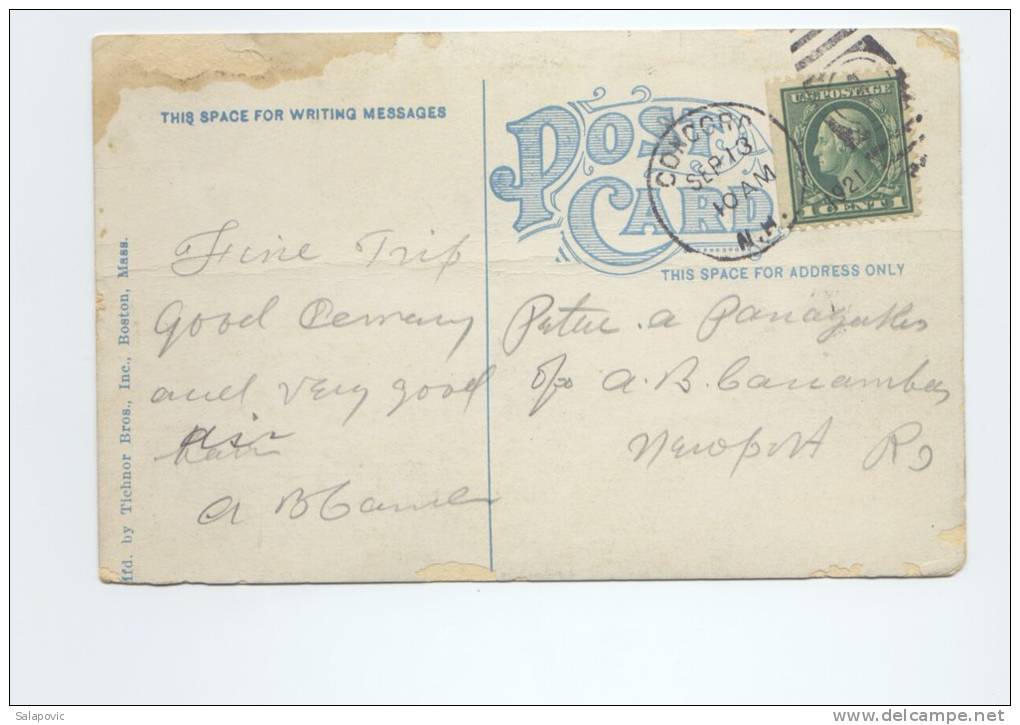 THIS SPACE FOR WRITING MESSAGES
POST CARD
U.S. POSTAGE
1 CENT 1
CONCORD
SEP 13
10 AM
1921
N.H.
THIS SPACE FOR ADDRESS ONLY
Fine Trip
good
and very good
air
Peter. a Panagakes
c/o A. B.
Newport RI
Mfd. by Tichnor Bros., Inc., Boston, Mass.
Salapovic
www.delcampe.net